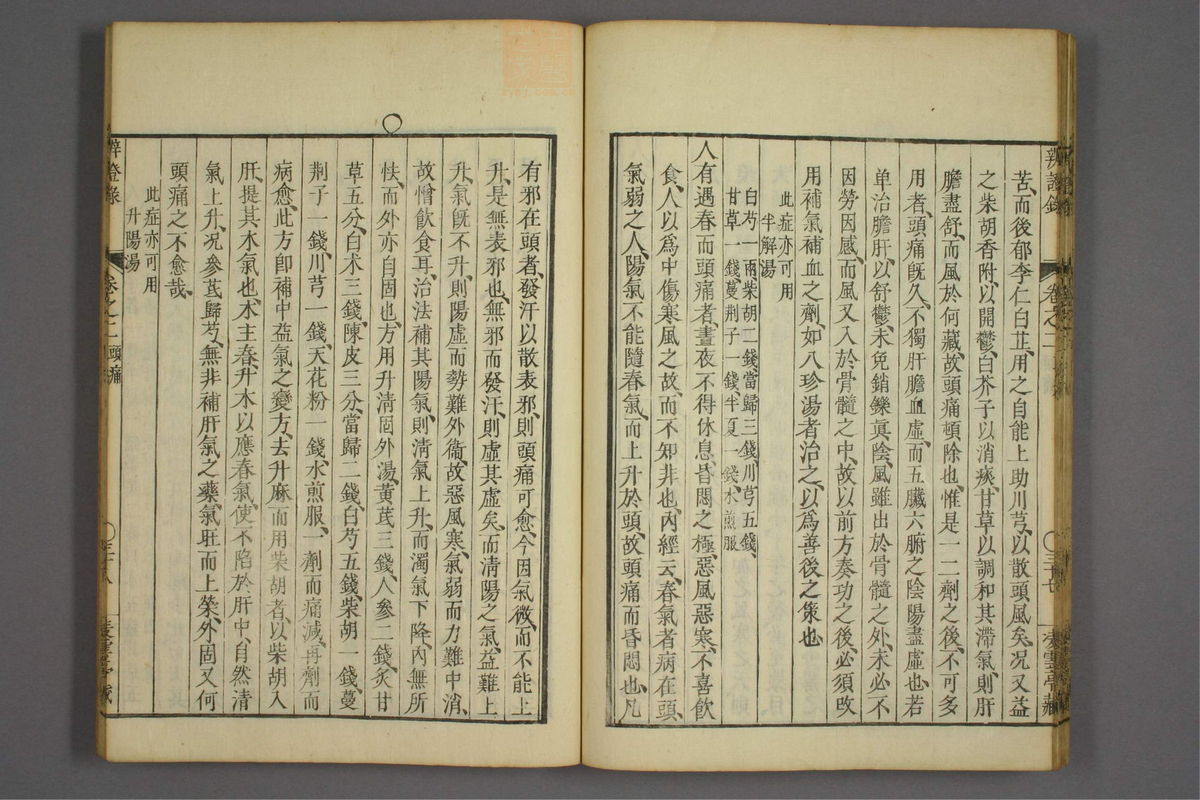 辨證錄
卷之二
三十七
苦、而後郁李仁白芷、用之自能上助川芎、以散頭風矣、况又益
之柴胡香附、以開鬱、白芥子以消痰、甘草以調和其滯氣、則肝
膽盡舒、而風於何藏、故頭痛頓除也、惟是一二劑之後、不可多
用者、頭痛旣久、不獨肝膽血虛、而五臟六腑之陰陽盡虛也、若
单治膽肝、以舒鬱、未免銷鑠眞陰、風雖出於骨髓之外、未必不
因勞因感、而風又入於骨髓之中、故以前方奏功之後、必須改
用補氣補血之劑、如八珍湯者治之、以爲善後之策也
此症亦可用
半解湯
白芍一兩柴胡二錢、當歸三錢川芎五錢、
甘草一錢、蔓荆子一錢、半夏一錢、水煎服
人有遇春而頭痛者、晝夜不得休息、昏悶之極、惡風惡寒、不喜飲
食、人以爲中傷寒風之故、而不知非也、內經云、春氣者病在頭、
氣弱之人、陽氣不能隨春氣、而上升於頭、故頭痛而昏悶也、凡
有邪在頭者、發汗以散表邪、則頭痛可愈、今因氣微、而不能上
升、是無表邪也、無邪而發汗、則虛其虛矣、而淸陽之氣、益難上
升、氣旣不升、則陽虛而勢難外衞、故惡風寒、氣弱而力難中消、
故憎飮食耳、治法補其陽氣、則淸氣上升、而濁氣下降、內無所
怯、而外亦自固也、方用升淸固外湯、黃芪三錢、人參二錢、炙甘
草五分、白术三錢、陳皮三分、當歸二錢、白芍五錢、柴胡一錢、蔓
荆子一錢、川芎一錢、天花粉一錢、水煎服、一劑而痛減、再劑而
病愈、此方卽補中益氣之變方、去升麻、而用柴胡者、以柴胡入
肝、提其木氣也、木主春、升木以應春氣、使不陷於肝中、自然淸
氣上升、况參芪歸芍、無非補肝氣之藥、氣旺而上榮、外固又何
頭痛之不愈哉、
此症亦可用
升陽湯
辨證錄
卷之二頭痛
三十八